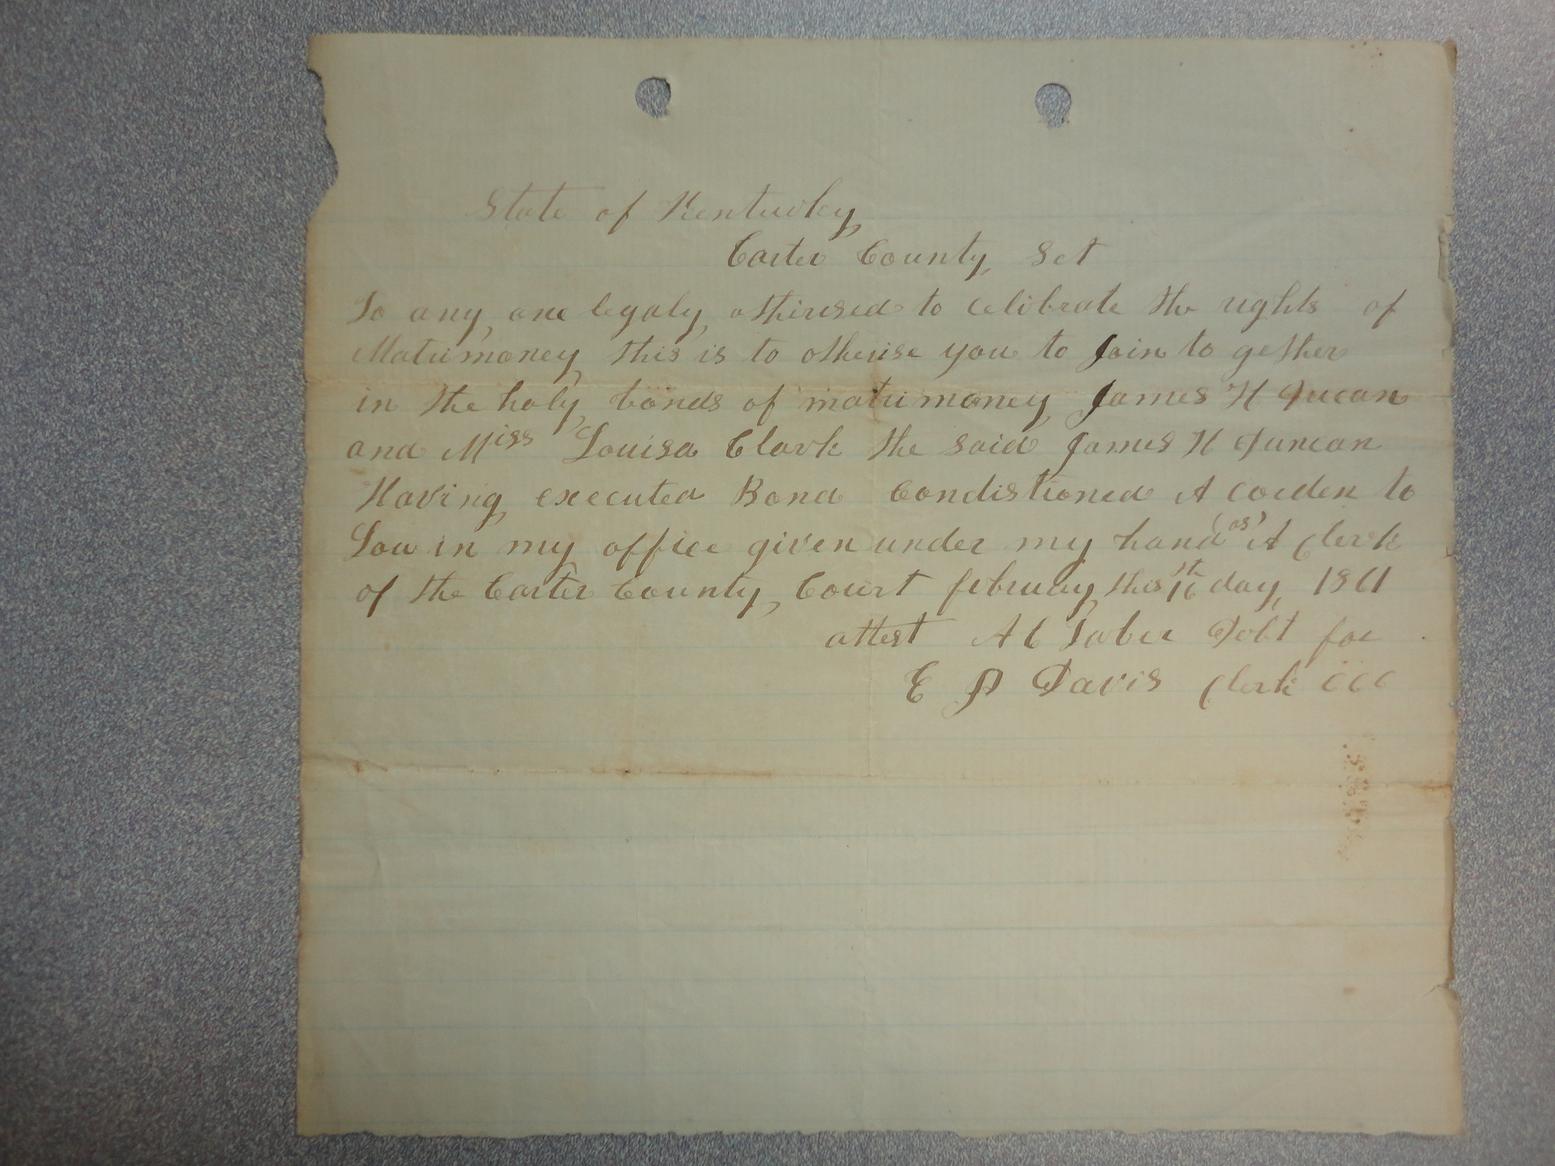 State of Kentucky,
Carter County, Set
To any, one legaly, atherised to celibrate the rights of
Matrimoney this is to otherise you to Join to gether
in the holy, bonds of matrimoney James H
and Miss Louisa Clark the said James H Duncan
Having, executed Bond Condistioned A corden to
Law in my office given under my hand (as) A Clerk
of the Carter County, Court february this 16 day, 1861
attest A C for
E D Davis Clerk CCC